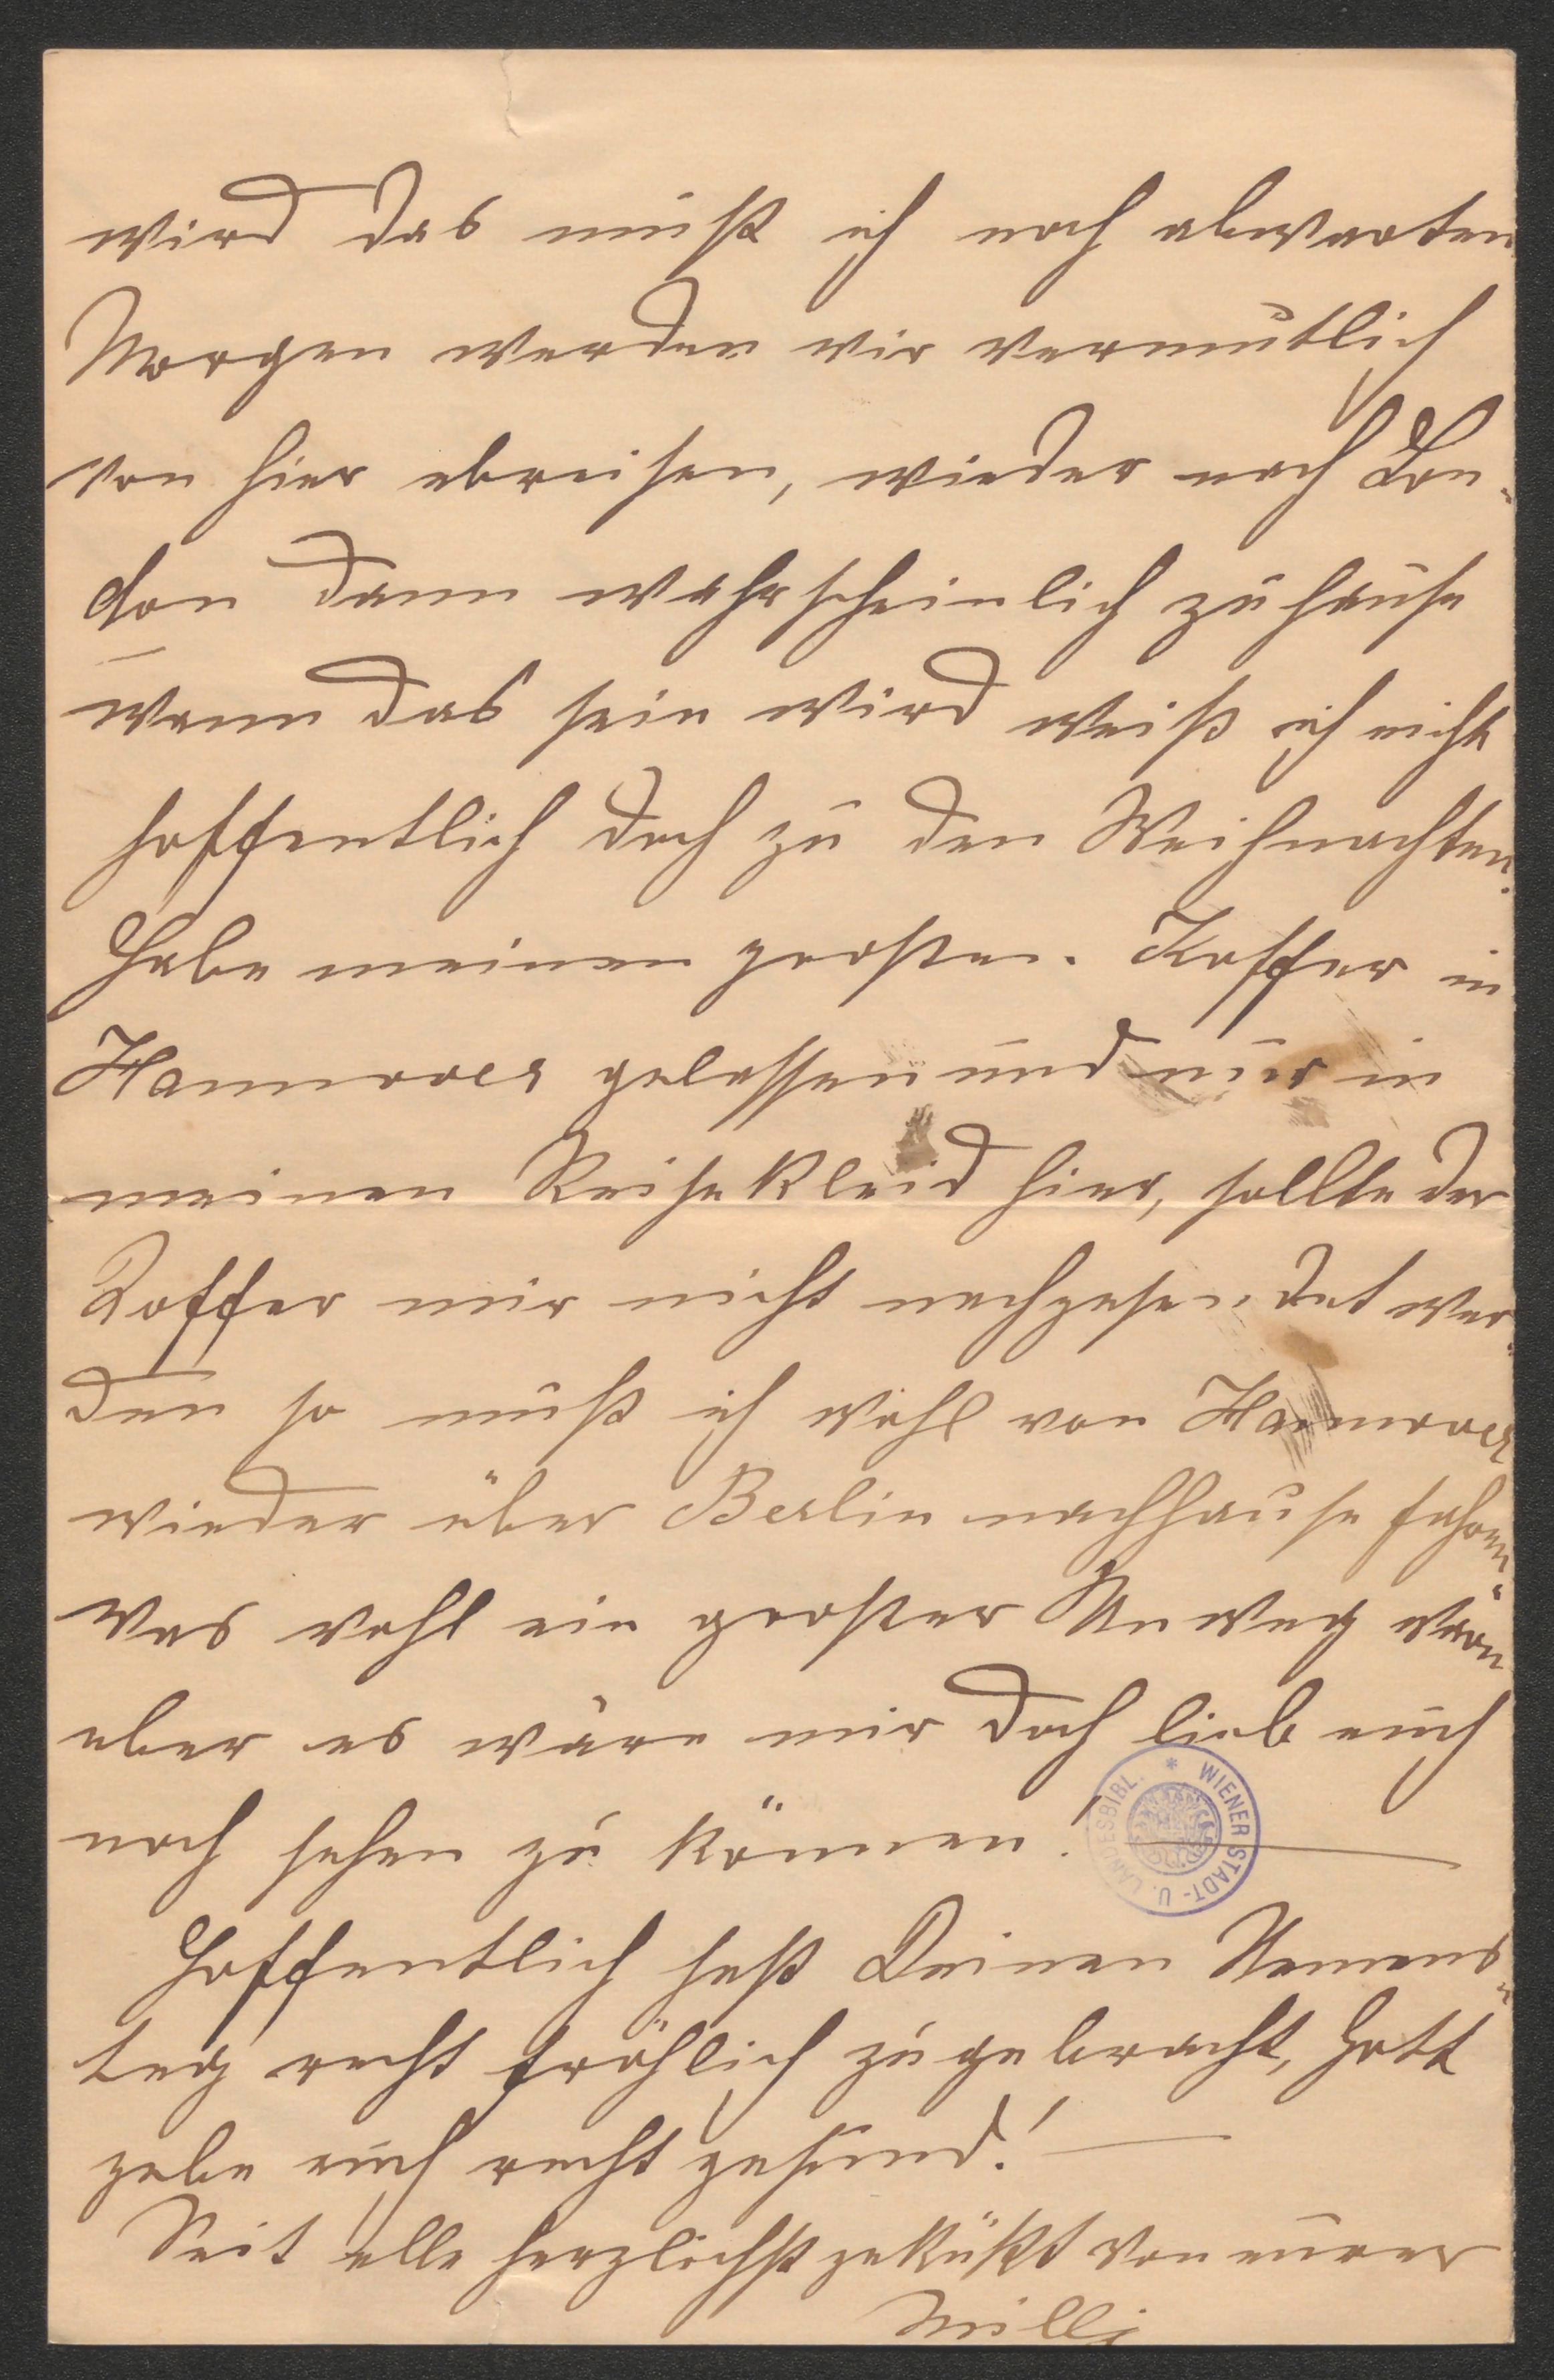 wird das muß ich noch abwarten
Morgen werden wir vermutlich
von hier abreisen, wieder nach Lon-
don dann wahrscheinlich zuhause
wann das sein wird weiß ich nicht
hoffentlich doch zu den Weihnachten.
Habe meinen großen Koffer in
Hannover gelassen und nur in
meinen Reisekleid hier, sollte der
Koffer mir nicht nachgesendet wer-
den so muß ich wohl von Hannover
wieder über Berlin nachhause fahren
was wohl ein großer Umweg wäre
aber es wäre mir doch lieb euch
noch sehen zu können! —
WIENER STADT- U. LANDESBIBL. *
Hoffentlich hast Deinen Namens-
tag recht fröhlich zugebracht, Gott
gebe euch recht gesund! —
Seit alle herzlichst geküßt von eurer
Milli